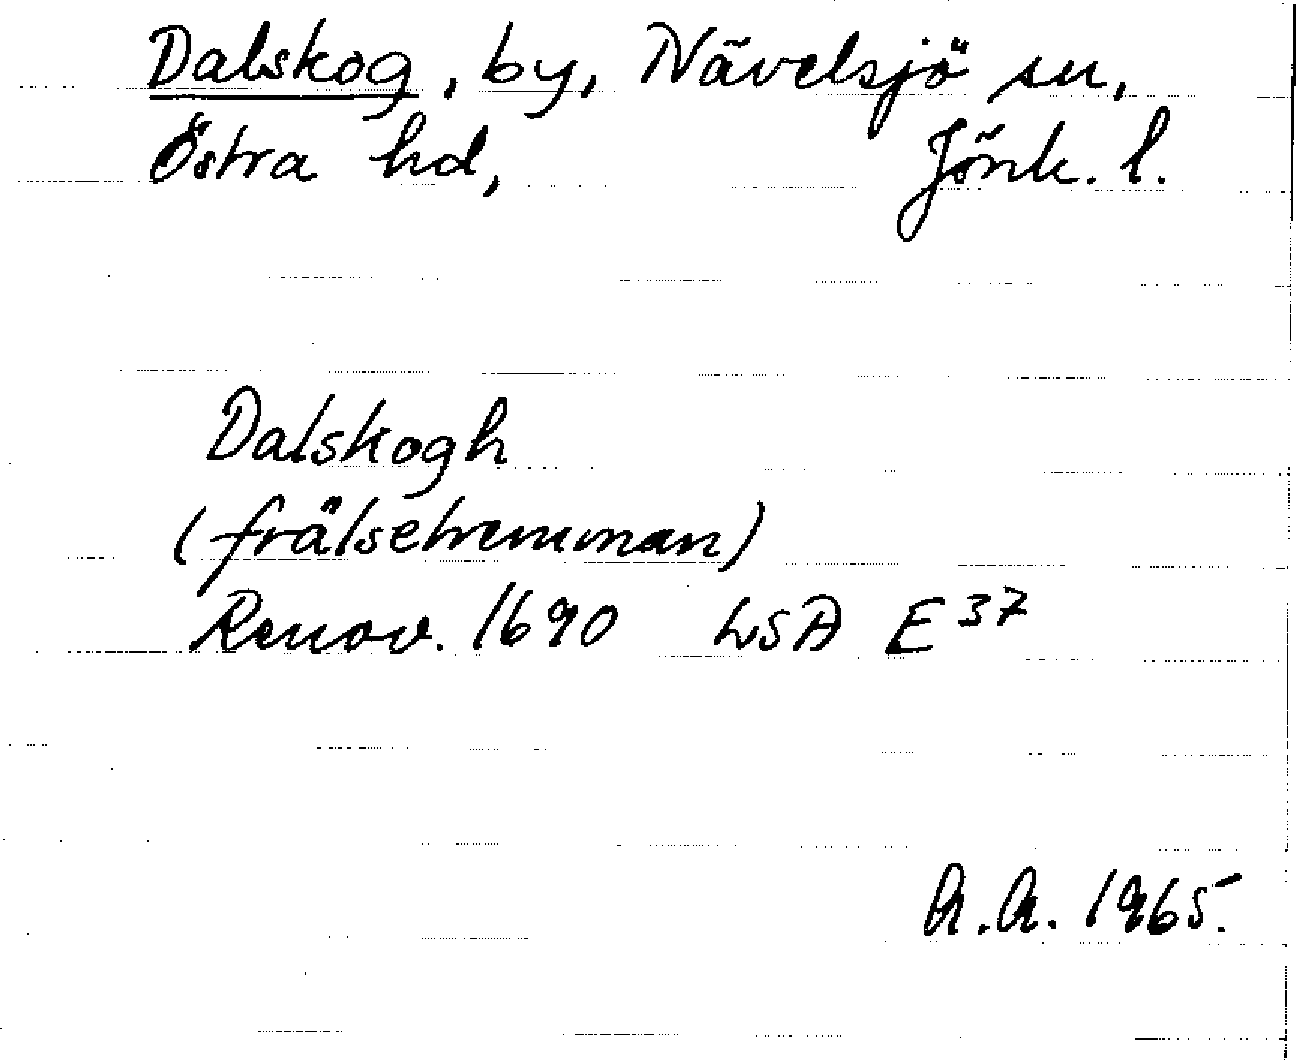 Dalskog, by, Nävelsjö sn,
Östra hd, Jönk. l.
Dalskogh
(frälsehemman)
Renov. 1690 LSA E 37
A.A. 1965.